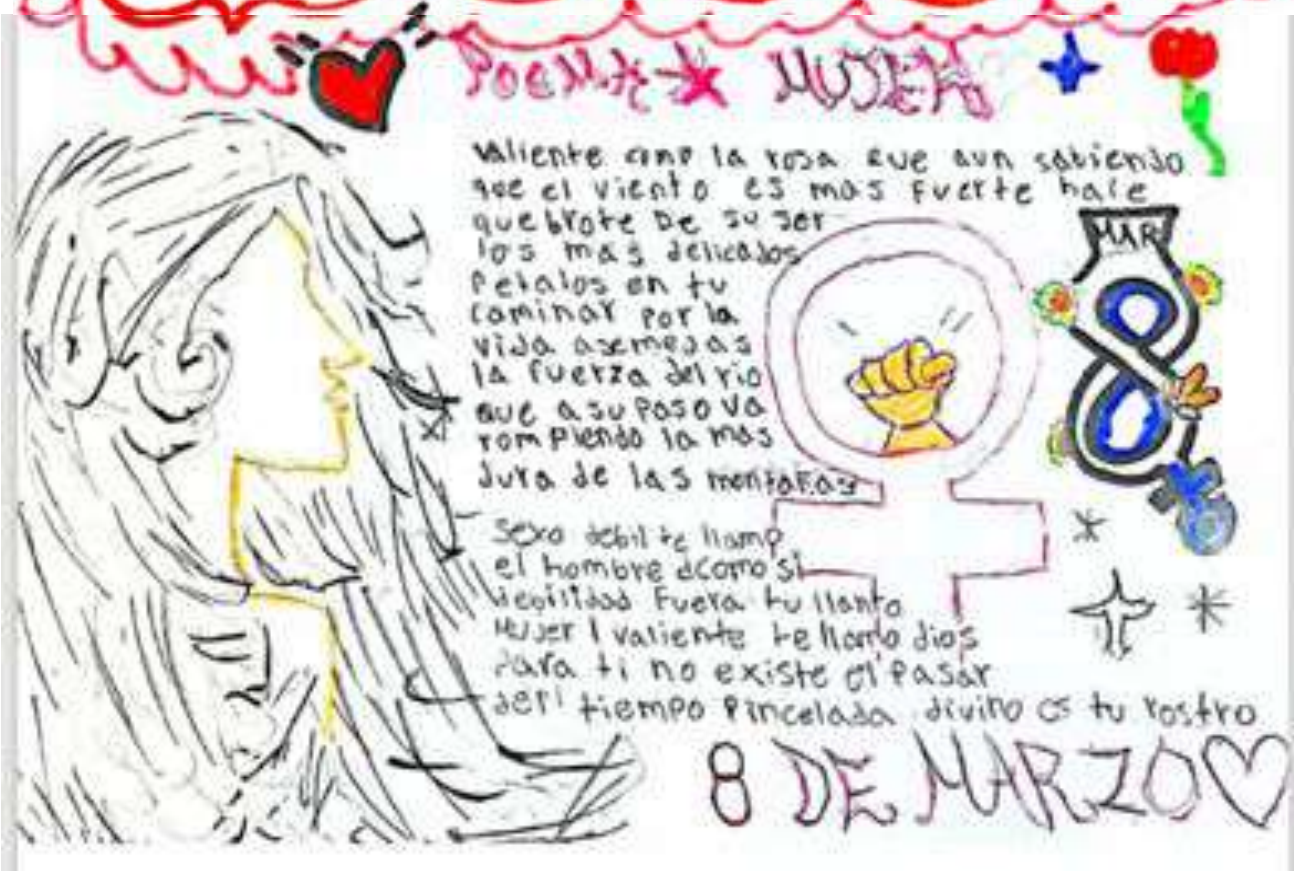 POEMA MUJER
valiente como la rosa que aun sabiendo
que el viento es mas fuerte hace
que brote de su ser
los mas delicados
Petalos en tu
caminar por la
vida asemejas
la fuerza del rio
que a su paso va
rompiendo la mas
dura de las montañas
MAR
8
sexo debil te llamo
el hombre como si
debilidad fuera tu llanto
Mujer valiente te llamo dios
Para ti no existe el pasar
del tiempo Pincelada divino es tu rostro
8 DE MARZO